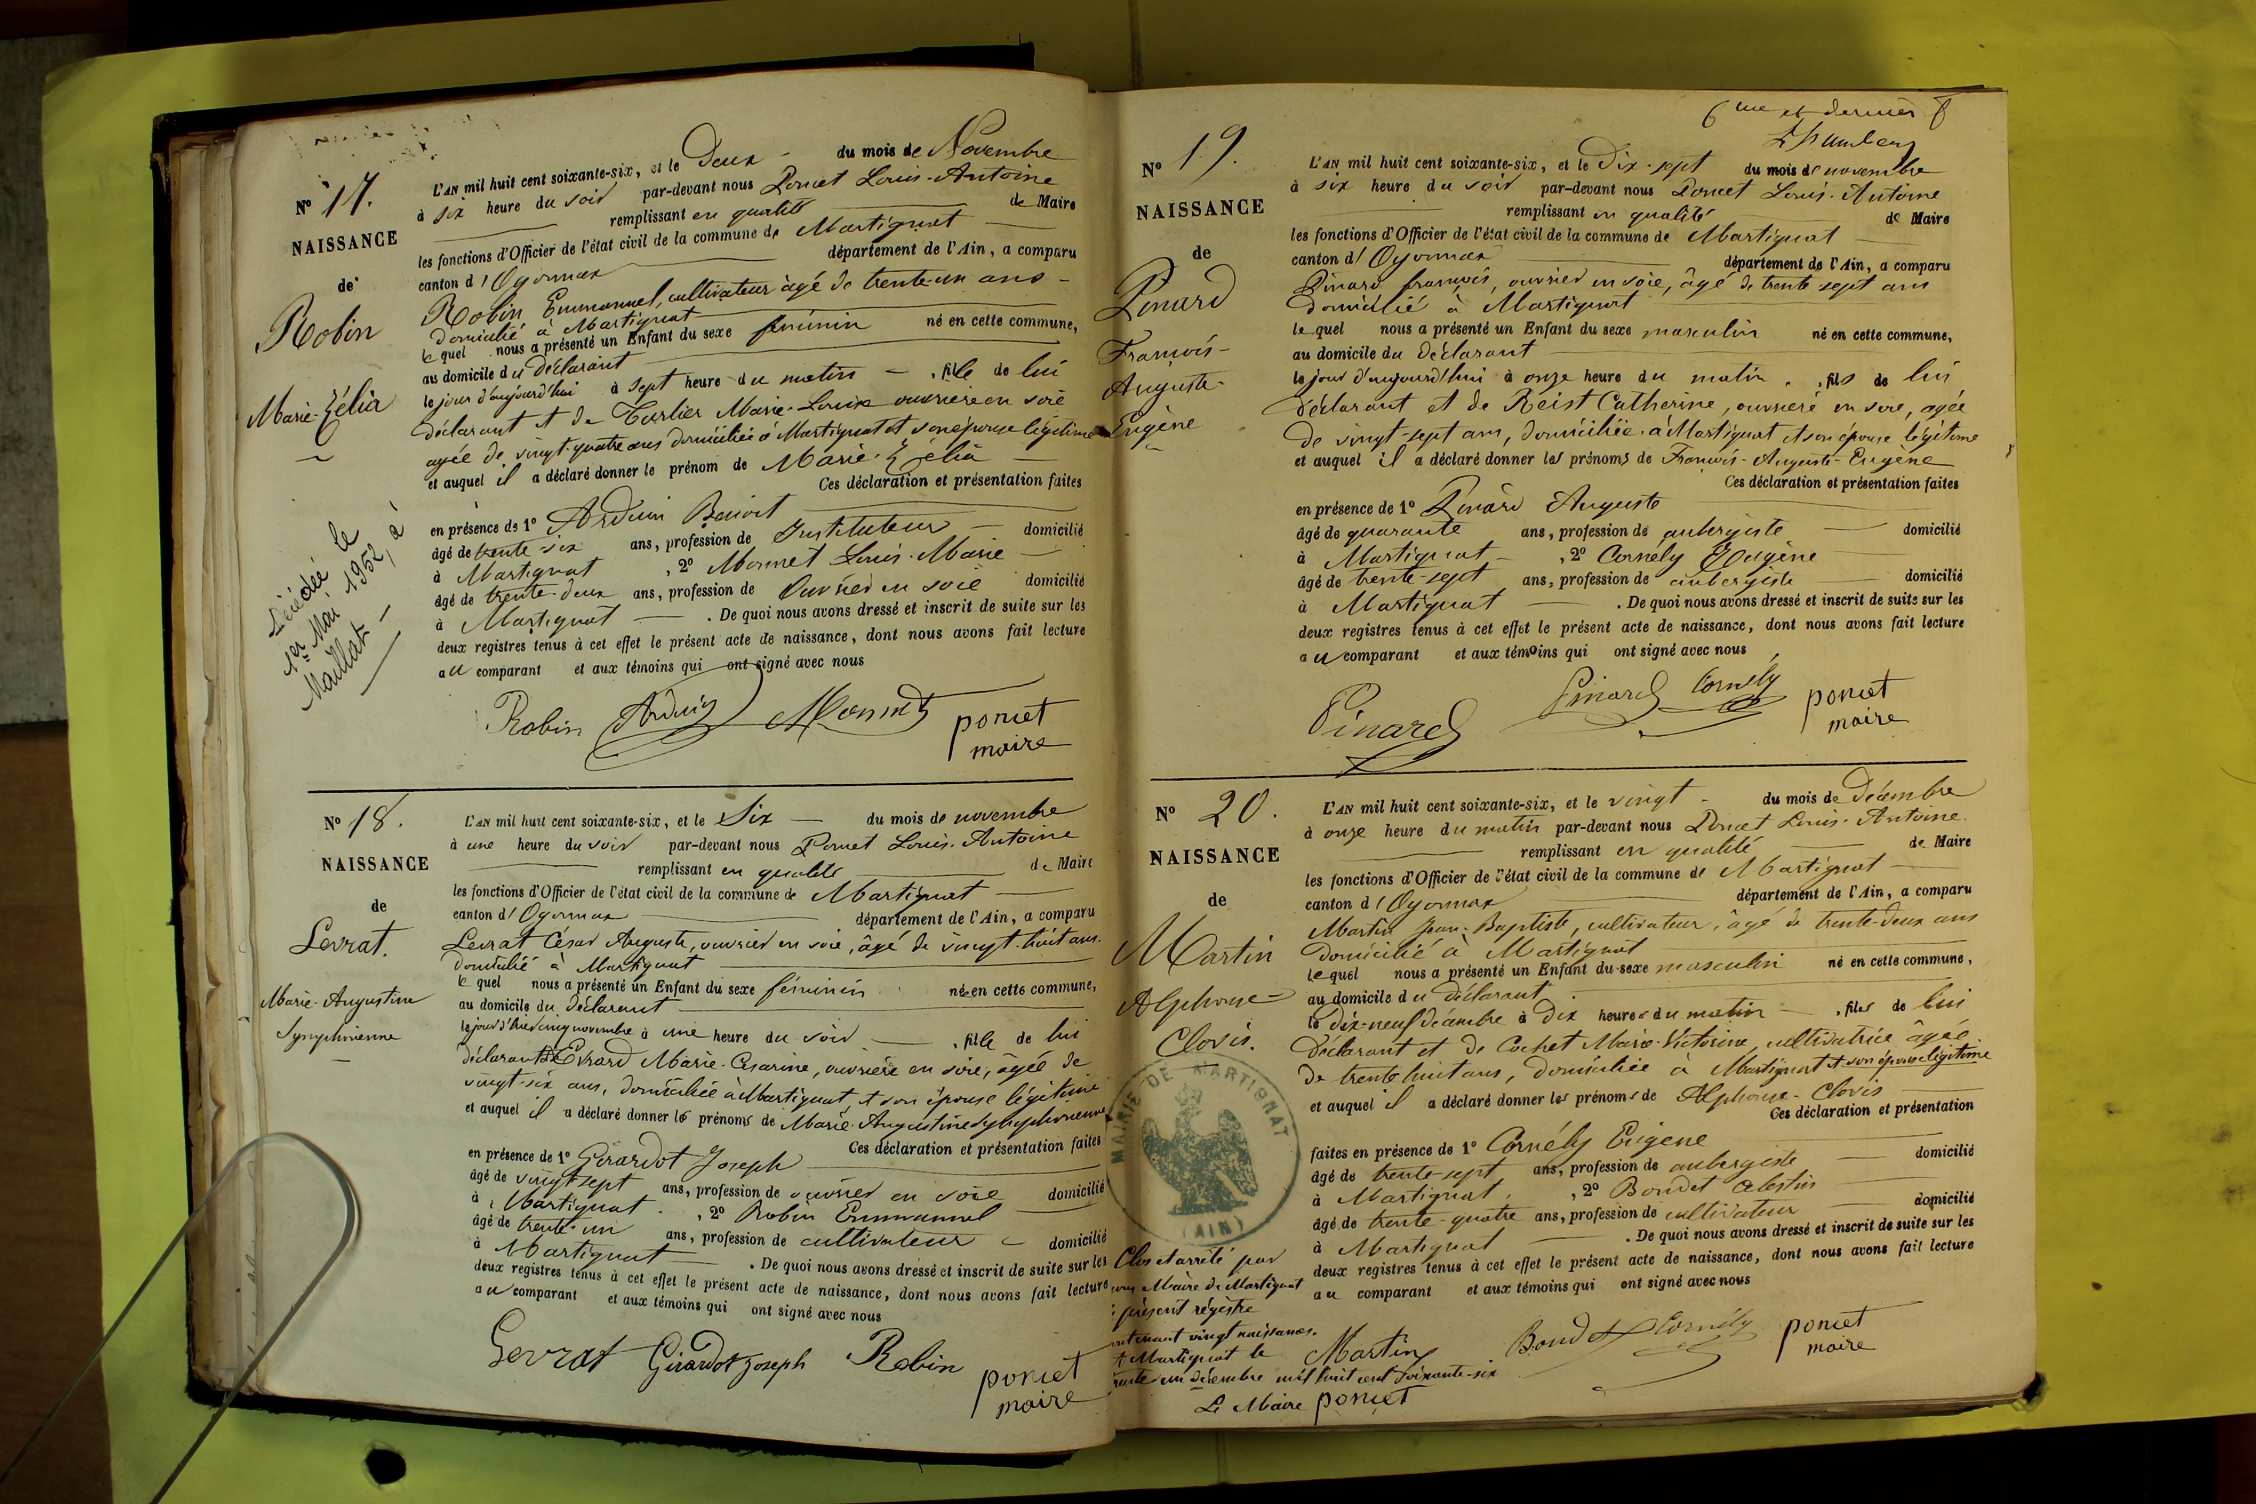 Nº 17.
NAISSANCE
de
Robin
Marie-Zélia
Décédée le
1er Mai 1952, à
Maillat
L'AN mil huit cent soixante-six, et le Deux du mois de Novembre
à six heure du soir par-devant nous Poncet Louis-Antoine
remplissant en qualité de Maire
les fonctions d'Officier de l'état civil de la commune de Martignat
canton d'Oyonnax département de l'Ain, a comparu
Robin Emmanuel, cultivateur âgé de trente-un ans
domicilié à Martignat
lequel nous a présenté un Enfant du sexe féminin né en cette commune,
au domicile du déclarant
le jour d'aujourd'hui à sept heure du matin , fille de lui
déclarant et de Tarlier Marie-Louise ouvrière en soie
agée de vingt-quatre ans domiciliée à Martignat et son épouse légitime
et auquel il a déclaré donner le prénom de Marie-Zélia
Ces déclaration et présentation faites
en présence de 1º Arduin Benoit
âgé de trente-six ans, profession de Instituteur domicilié
à Martignat , 2º Monnet Louis-Marie
âgé de trente-deux ans, profession de Ouvrier en soie domicilié
à Martignat . De quoi nous avons dressé et inscrit de suite sur les
deux registres tenus à cet effet le présent acte de naissance, dont nous avons fait lecture
au comparant et aux témoins qui ont signé avec nous
Robin Arduin Monnet poncet
maire
Nº 18.
NAISSANCE
de
Levrat.
Marie-Augustine
Symphorienne
L'AN mil huit cent soixante-six, et le Six du mois de novembre
à une heure du soir par-devant nous Poncet Louis-Antoine
remplissant en qualité de Maire
les fonctions d'Officier de l'état civil de la commune de Martignat
canton d'Oyonnax département de l'Ain, a comparu
Levrat César Auguste, ouvrier en soie, âgé de vingt-huit ans.
domicilié à Martignat
lequel nous a présenté un Enfant du sexe féminin né en cette commune,
au domicile du déclarant
le jour d'hier cinq novembre à une heure du soir , fille de lui
déclarant et Evrard Marie-Césarine, ouvrière en soie, âgée de
vingt-six ans, domiciliée à Martignat et son épouse légitime
et auquel il a déclaré donner les prénoms de Marie-Augustine Symphorienne
Ces déclaration et présentation faites
en présence de 1º Girardot Joseph
âgé de vingt-sept ans, profession de ouvrier en soie domicilié
à Martignat , 2º Robin Emmanuel
âgé de trente-un ans, profession de cultivateur domicilié
à Martignat . De quoi nous avons dressé et inscrit de suite sur les
deux registres tenus à cet effet le présent acte de naissance, dont nous avons fait lecture
au comparant et aux témoins qui ont signé avec nous
Levrat Girardot Joseph Robin poncet
maire
6me et dernier f
Nº 19.
NAISSANCE
de
Pinard
François-
Auguste-
Eugène
L'AN mil huit cent soixante-six, et le Dix-sept du mois de novembre
à six heure du soir par-devant nous Poncet Louis-Antoine
remplissant en qualité de Maire
les fonctions d'Officier de l'état civil de la commune de Martignat
canton d'Oyonnax département de l'Ain, a comparu
Pinard françois, ouvrier en soie, âgé de trente sept ans
domicilié à Martignat
lequel nous a présenté un Enfant du sexe masculin né en cette commune,
au domicile du déclarant
le jour d'aujourd'hui à onze heure du matin , fils de lui
déclarant et de Reist Catherine, ouvrière en soie, agée
de vingt-sept ans, domiciliée à Martignat et son épouse légitime
et auquel il a déclaré donner les prénoms de François-Auguste-Eugène
Ces déclaration et présentation faites
en présence de 1º Pinard Auguste
âgé de quarante ans, profession de aubergiste domicilié
à Martignat , 2º Cornély Eugène
âgé de trente-sept ans, profession de aubergiste domicilié
à Martignat . De quoi nous avons dressé et inscrit de suite sur les
deux registres tenus à cet effet le présent acte de naissance, dont nous avons fait lecture
au comparant et aux témoins qui ont signé avec nous
Pinard Pinard Cornély poncet
maire
Nº 20.
NAISSANCE
de
Martin
Alphonse-
Clovis.
L'AN mil huit cent soixante-six, et le vingt du mois de Décembre
à onze heure du matin par-devant nous Poncet Louis-Antoine.
remplissant en qualité de Maire
les fonctions d'Officier de l'état civil de la commune de Martignat
canton d'Oyonnax département de l'Ain, a comparu
Martin Jean-Baptiste, cultivateur, âgé de trente-deux ans
domicilié à Martignat
lequel nous a présenté un Enfant du sexe masculin né en cette commune,
au domicile du déclarant
le dix-neuf décembre à dix heures du matin , fils de lui
déclarant et de Cochet Marie-Victorine, cultivatrice âgée
de trente huit ans, domiciliée à Martignat et son épouse légitime
et auquel il a déclaré donner les prénoms de Alphonse-Clovis
Ces déclaration et présentation
faites en présence de 1º Cornély Eugène
âgé de trente-sept ans, profession de aubergiste domicilié
à Martignat , 2º Boudet Célestin
âgé de trente-quatre ans, profession de cultivateur domicilié
à Martignat . De quoi nous avons dressé et inscrit de suite sur les
deux registres tenus à cet effet le présent acte de naissance, dont nous avons fait lecture
au comparant et aux témoins qui ont signé avec nous
Martin Boudet Cornély poncet
maire
MAIRIE DE MARTIGNAT
(AIN)
Clos et arrêté par
nous Maire de Martignat
présent régistre
contenant vingt naissances.
A Martignat le
trente un décembre mil huit cent soixante-six
Le Maire poncet